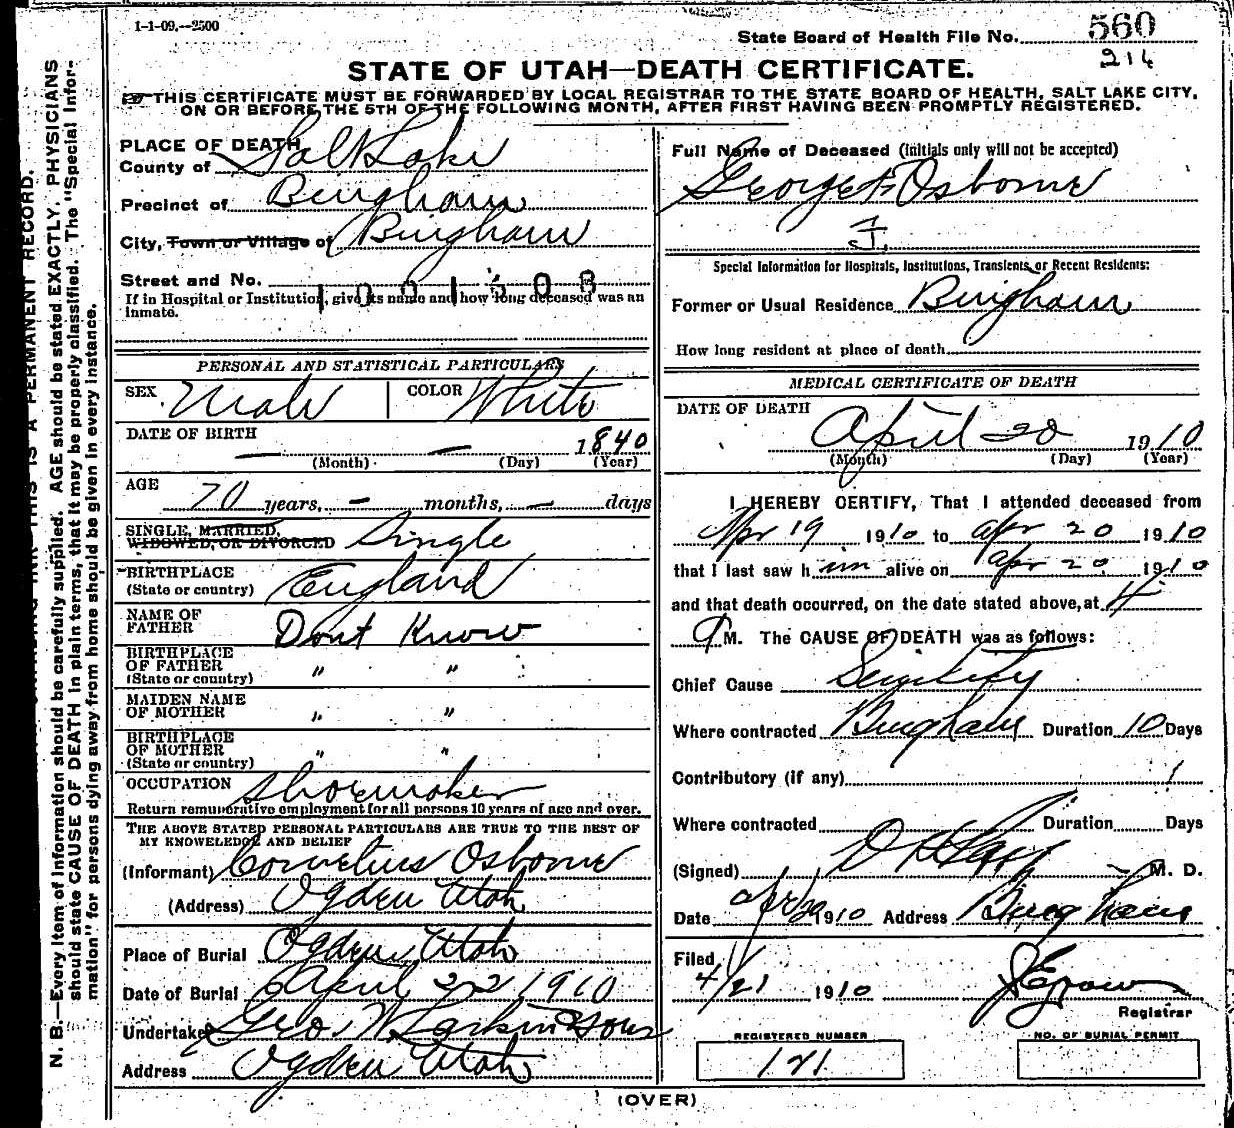 1-1-09.--2500
State Board of Health File No. 560
214
STATE OF UTAH—DEATH CERTIFICATE.
THIS CERTIFICATE MUST BE FORWARDED BY LOCAL REGISTRAR TO THE STATE BOARD OF HEALTH, SALT LAKE CITY,
ON OR BEFORE THE 5TH OF THE FOLLOWING MONTH, AFTER FIRST HAVING BEEN PROMPTLY REGISTERED.
PLACE OF DEATH
County of Salt Lake
Precinct of Bingham
City, Town or Village of Bingham
Street and No.
1001508
If in Hospital or Institution, give its name and how long deceased was an
inmate.
PERSONAL AND STATISTICAL PARTICULARS
SEX Male COLOR White
DATE OF BIRTH
— — 1840
(Month) (Day) (Year)
AGE
70 years, — months, — days
SINGLE, MARRIED,
WIDOWED, OR DIVORCED Single
BIRTHPLACE
(State or country) England
NAME OF
FATHER Dont Know
BIRTHPLACE
OF FATHER
(State or country) " "
MAIDEN NAME
OF MOTHER " "
BIRTHPLACE
OF MOTHER
(State or country) " "
OCCUPATION Shoemaker
Return remunerative employment for all persons 10 years of age and over.
THE ABOVE STATED PERSONAL PARTICULARS ARE TRUE TO THE BEST OF
MY KNOWLEDGE AND BELIEF
(Informant) Cornelius Osborne
(Address) Ogden Utah
Place of Burial Ogden Utah
Date of Burial April 22 1910
Undertaker Geo. W. Larkin & Sons
Address Ogden Utah
Full Name of Deceased (Initials only will not be accepted)
George F Osborne
Special Information for Hospitals, Institutions, Transients, or Recent Residents:
Former or Usual Residence Bingham
How long resident at place of death
MEDICAL CERTIFICATE OF DEATH
DATE OF DEATH
April 20 1910
(Month) (Day) (Year)
I HEREBY CERTIFY, That I attended deceased from
Apr 19 1910 to Apr 20 1910
that I last saw him alive on Apr 20 1910
and that death occurred, on the date stated above, at 4
M. The CAUSE OF DEATH was as follows:
Chief Cause Senility
Where contracted Bingham Duration 10 Days
Contributory (if any)
Where contracted Duration Days
(Signed) M. D.
Date Apr/20 1910 Address Bingham
Filed
4/21 1910
Registrar
REGISTERED NUMBER
121
NO. OF BURIAL PERMIT
(OVER)
N. B.—Every item of information should be carefully supplied. AGE should be stated EXACTLY. PHYSICIANS
should state CAUSE OF DEATH in plain terms, that it may be properly classified. The "Special Infor-
mation" for persons dying away from home should be given in every instance.
THIS IS A PERMANENT RECORD.